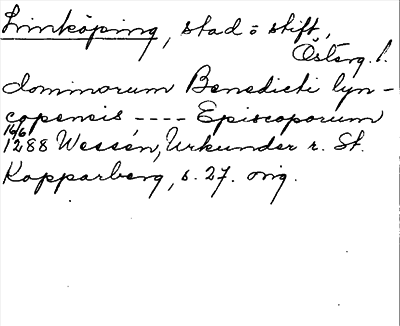 Linköping, stad o stift,
Österg. l.
dominorum Benedicti lyn-
copensis ---- Episcoporum
16/6
1288 Wessén, Urkunder r. St.
Kopparberg, s. 27. orig.